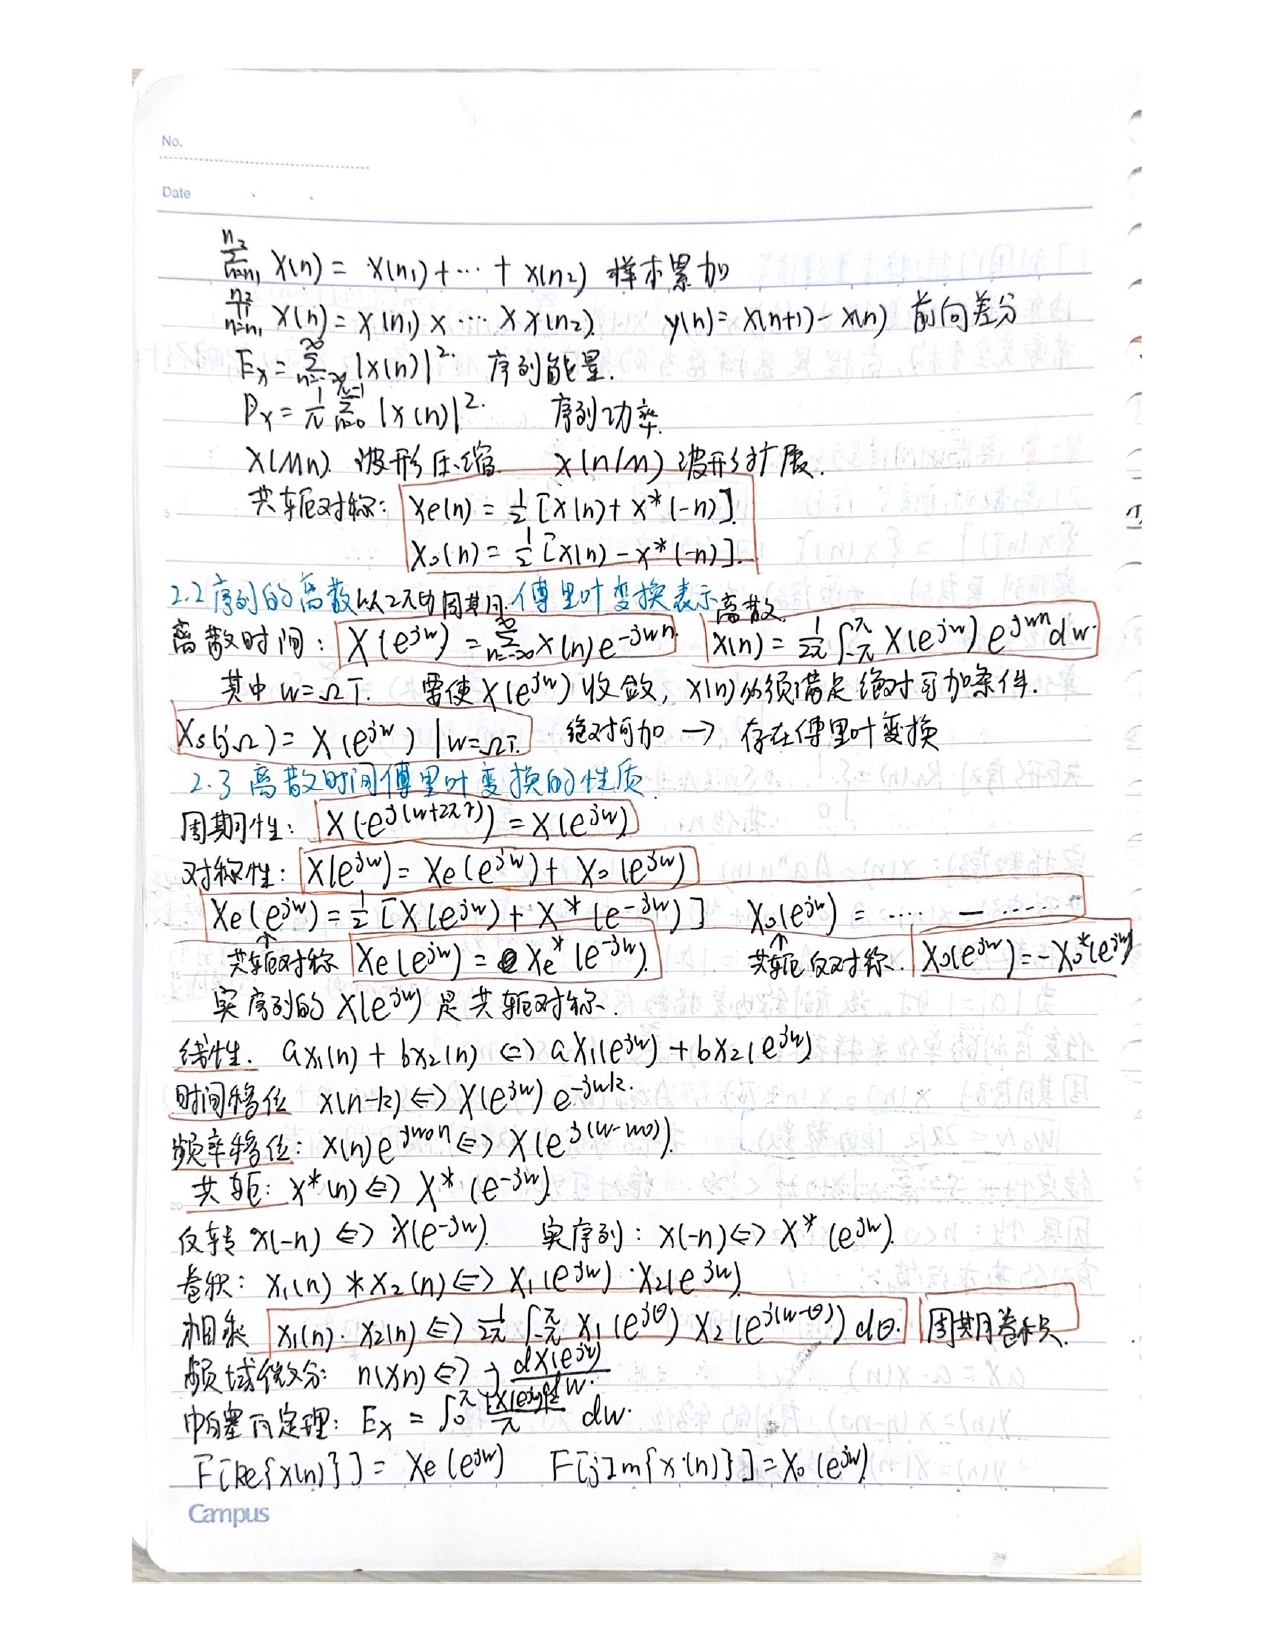 No.
Date
∑_{n=n₁}^{n₂} x(n) = x(n₁)+…+ x(n₂) 样本累加
∏_{n=n₁}^{n₂} x(n) = x(n₁) x … x x(n₂). y(n) = x(n+1) − x(n) 前向差分
Ex = ∑_{n=-∞}^{∞} |x(n)|². 序列能量.
Px = 1/N ∑_{n=0}^{N-1} |x(n)|². 序列功率.
x(Mn). 波形压缩. x(n/M) 波形扩展.
共轭对称: Xe(n) = 1/2 [x(n) + x*(-n)].
Xo(n) = 1/2 [x(n) − x*(-n)].
2.2 序列的离散以2π为周期.傅里叶变换表示 离散.
离散时间: X(e^{jw}) = ∑_{n=-∞}^{∞} x(n)e^{-jwn}. x(n) = 1/2π ∫_{-π}^{π} X(e^{jw}) e^{jwn} dw.
其中 w=ΩT. 需使X(e^{jw})收敛, x(n)必须满足绝对可加条件.
Xs(jΩ) = X(e^{jw}) | w=ΩT. 绝对可加 → 存在傅里叶变换
2.3 离散时间傅里叶变换的性质.
周期性: X(e^{j(w+2πr)}) = X(e^{jw})
对称性: X(e^{jw}) = Xe(e^{jw}) + Xo(e^{jw})
Xe(e^{jw}) = 1/2 [X(e^{jw}) + X*(e^{-jw})] Xo(e^{jw}) = …. − ……
↑共轭对称 Xe(e^{jw}) = Xe*(e^{-jw}). ↑共轭反对称. Xo(e^{jw}) = −Xo*(e^{jw})
实序列的 X(e^{jw}) 是共轭对称.
线性. ax₁(n) + bx₂(n) ⇔ aX₁(e^{jw}) + bX₂(e^{jw})
时间移位 x(n-k) ⇔ X(e^{jw}) e^{-jwk}.
频率移位: x(n)e^{jw₀n} ⇔ X(e^{j(w-w₀)}).
共轭: x*(n) ⇔ X*(e^{-jw}).
反转 x(-n) ⇔ X(e^{-jw}). 实序列: x(-n) ⇔ X*(e^{jw}).
卷积: x₁(n) * x₂(n) ⇔ X₁(e^{jw}) · X₂(e^{jw})
相乘 x₁(n) · x₂(n) ⇔ 1/2π ∫_{-π}^{π} X₁(e^{jθ}) X₂(e^{j(w-θ)}) dθ. 周期卷积.
频域微分: n(xn) ⇔ j dX(e^{jw})/dw.
帕塞瓦定理: Ex = ∫₀^{π} |X(e^{jw})|²/π dw.
F[Re{x(n)}] = Xe(e^{jw}) F[jIm{x(n)}] = Xo(e^{jw}).
Campus